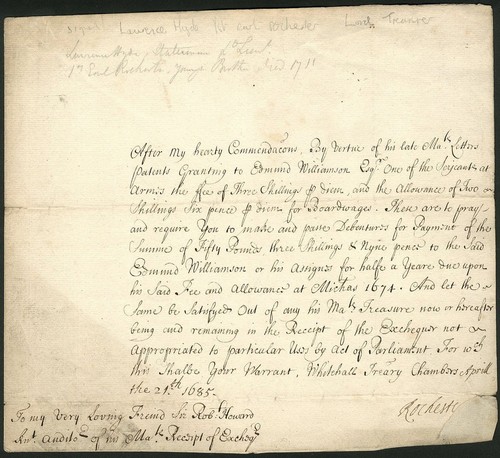 signed Lawrence Hyde 1st earl rochester Lord Treasurer
Lawrence Hyde, statesman Ld Lieut
1st Earl Rochester, Died 1711
After my hearty Commendacons, By Vertue of his late Mats Letters
patents Granting to Edmund Williamson Esqr. One of the Serjeants at
Armes the ffee of Three Shillings p diem, and the Allowance of Two
Shillings Six pence p diem for Boardwages. These are to pray
and require You to make and passe Debentures for Payment of the
Summe of Fifty Pounds three Shillings & Nyne pence to the Said
Edmund Williamson or his Assignes for halfe a Yeare due upon
his Said Fee and Allowance at Michas 1674. And let the
Same be Satisfyed Out of any his Mats Treasure now or hereafter
being and remaining in the Receipt of the Exchequer not
Appropriated to particular Uses by Act of Parliament. For wch
this Shalbe Your Warrant, Whitehall-Treary Chambers April
the 21.th 1685.
Rochester
To my Very Loving Freind Sir Robt. Howard
Knt. Auditor of his Mats Receipt of Excheqr